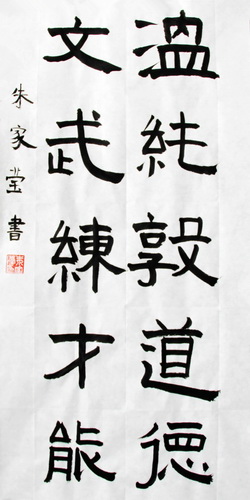 温純敦道德
文武練才能
朱家莹書